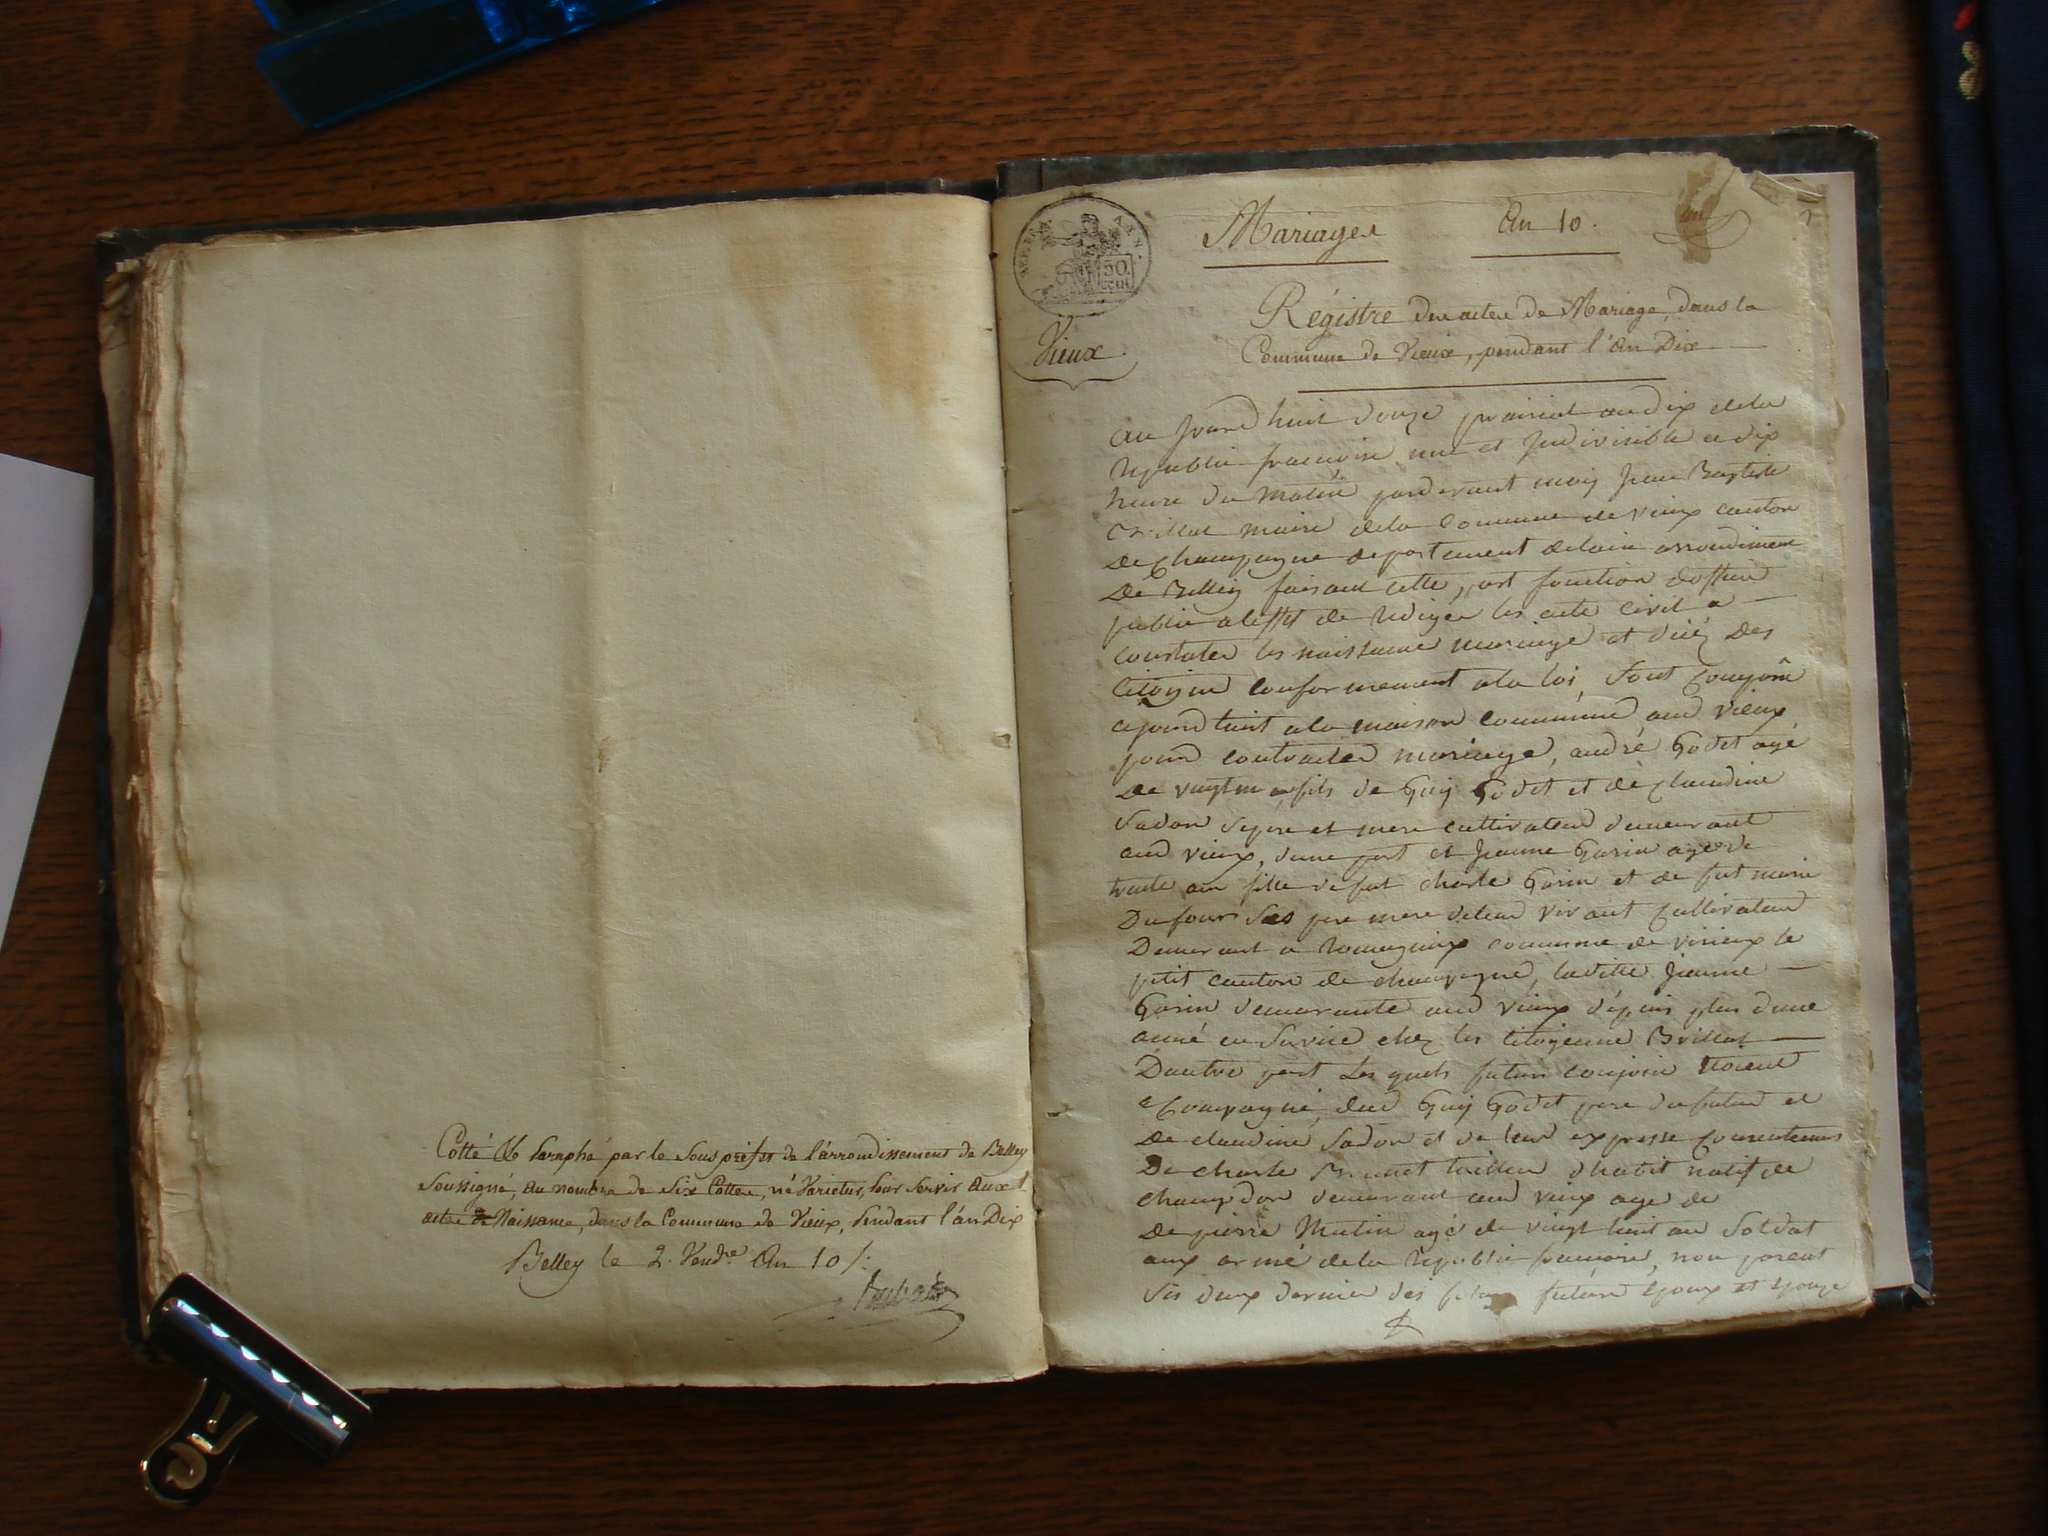 Cotté & Paraphé par le Sous préfet de l'arrondissement de Belley
Soussigné, au nombre de Six Cottes, né Varietur, pour Servir aux
actes de Naissance, dans la Commune de Vieux, pendant l'an Dix
Belley le 2. Vend.re An 10
50
Vieux
Mariages An 10.
un
Régistre des actes de Mariage, dans la
Commune de Vieux, pendant l'An Dix
au jourdhuit douze prairial an dix dela
republic francoise une et Indivisible a dix
heure du Matin pardevant moy Jean Baptiste
Brillat maire dela Commune de vieux canton
De Champagne departement delain arrondiment
De Belley faisant cette part fonction doffice
public aleffet de rediger les acte Civil a
Constater les naissance mariage et des
Citoyen Conformement ala loi, Sont
ajourdhuit ala maison commune aud vieux
pour contracter mariage, andré Godet agé
De fils de Guy Godet et de Claudine
Sadon pere et mere cultivateur demeurant
aud vieux, dune part et Jeanne Gorin agé de
trente an fille de fut charle Gorin et de fut marie
Dufour Ses pere mere vivant Cultivateur
Demerant a commune de virieux le
petit canton de champagne, ladite Jeanne
Gorin demerante aud vieux depuis plus dune
anné en Service chez les Citoyenne Brillat
Dautre part Les quels futur conjoin
Compagné dud Guy Godet pere du futur et
De claudine Sadon et de leur expresse Consentement
De charle tailleur dhabit natif de
champdor demeurant aud vieux age de
De pierre Mutin agé de vingt huit an Soldat
aux armé dela republic francoise, non parent
Les deux dernier des futur Epoux et Epouze